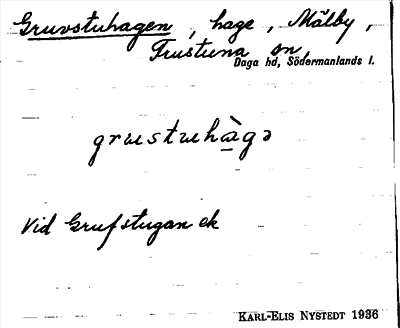 Gruvstuhagen, hage, Mälby,
Frustuna sn,
Daga hd, Södermanlands l.
grustuhàgə
Vid Grufstugan ek
KARL-ELIS NYSTEDT 1936